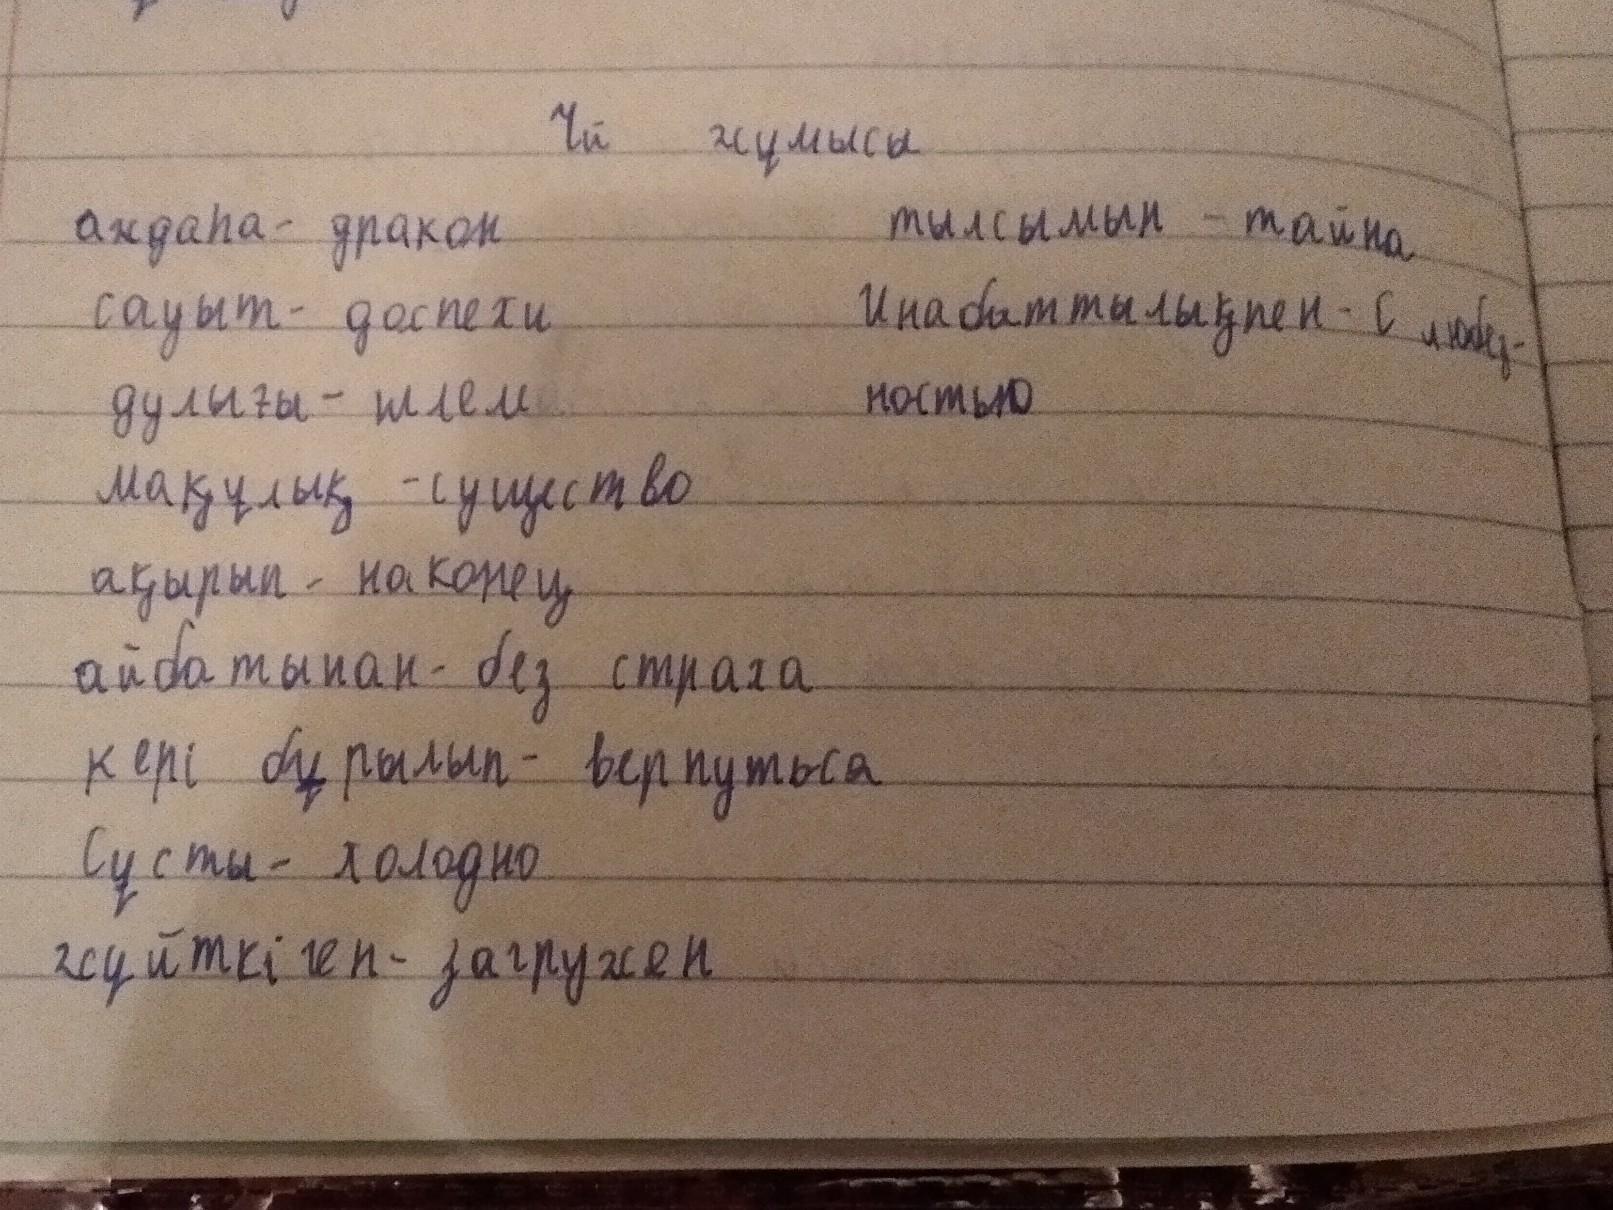 Үй жұмысы
аждаһа - дракон
сауыт - доспехи
дулығы - шлем
Мақұлық - существо
ақырып - наконец
айбатынан - без страха
кері бұрылып - вернуться
Сұсты - холодно
жүйткіген - загружен
тылсымын - тайна
Инабаттылықпен - С любез-
ностью